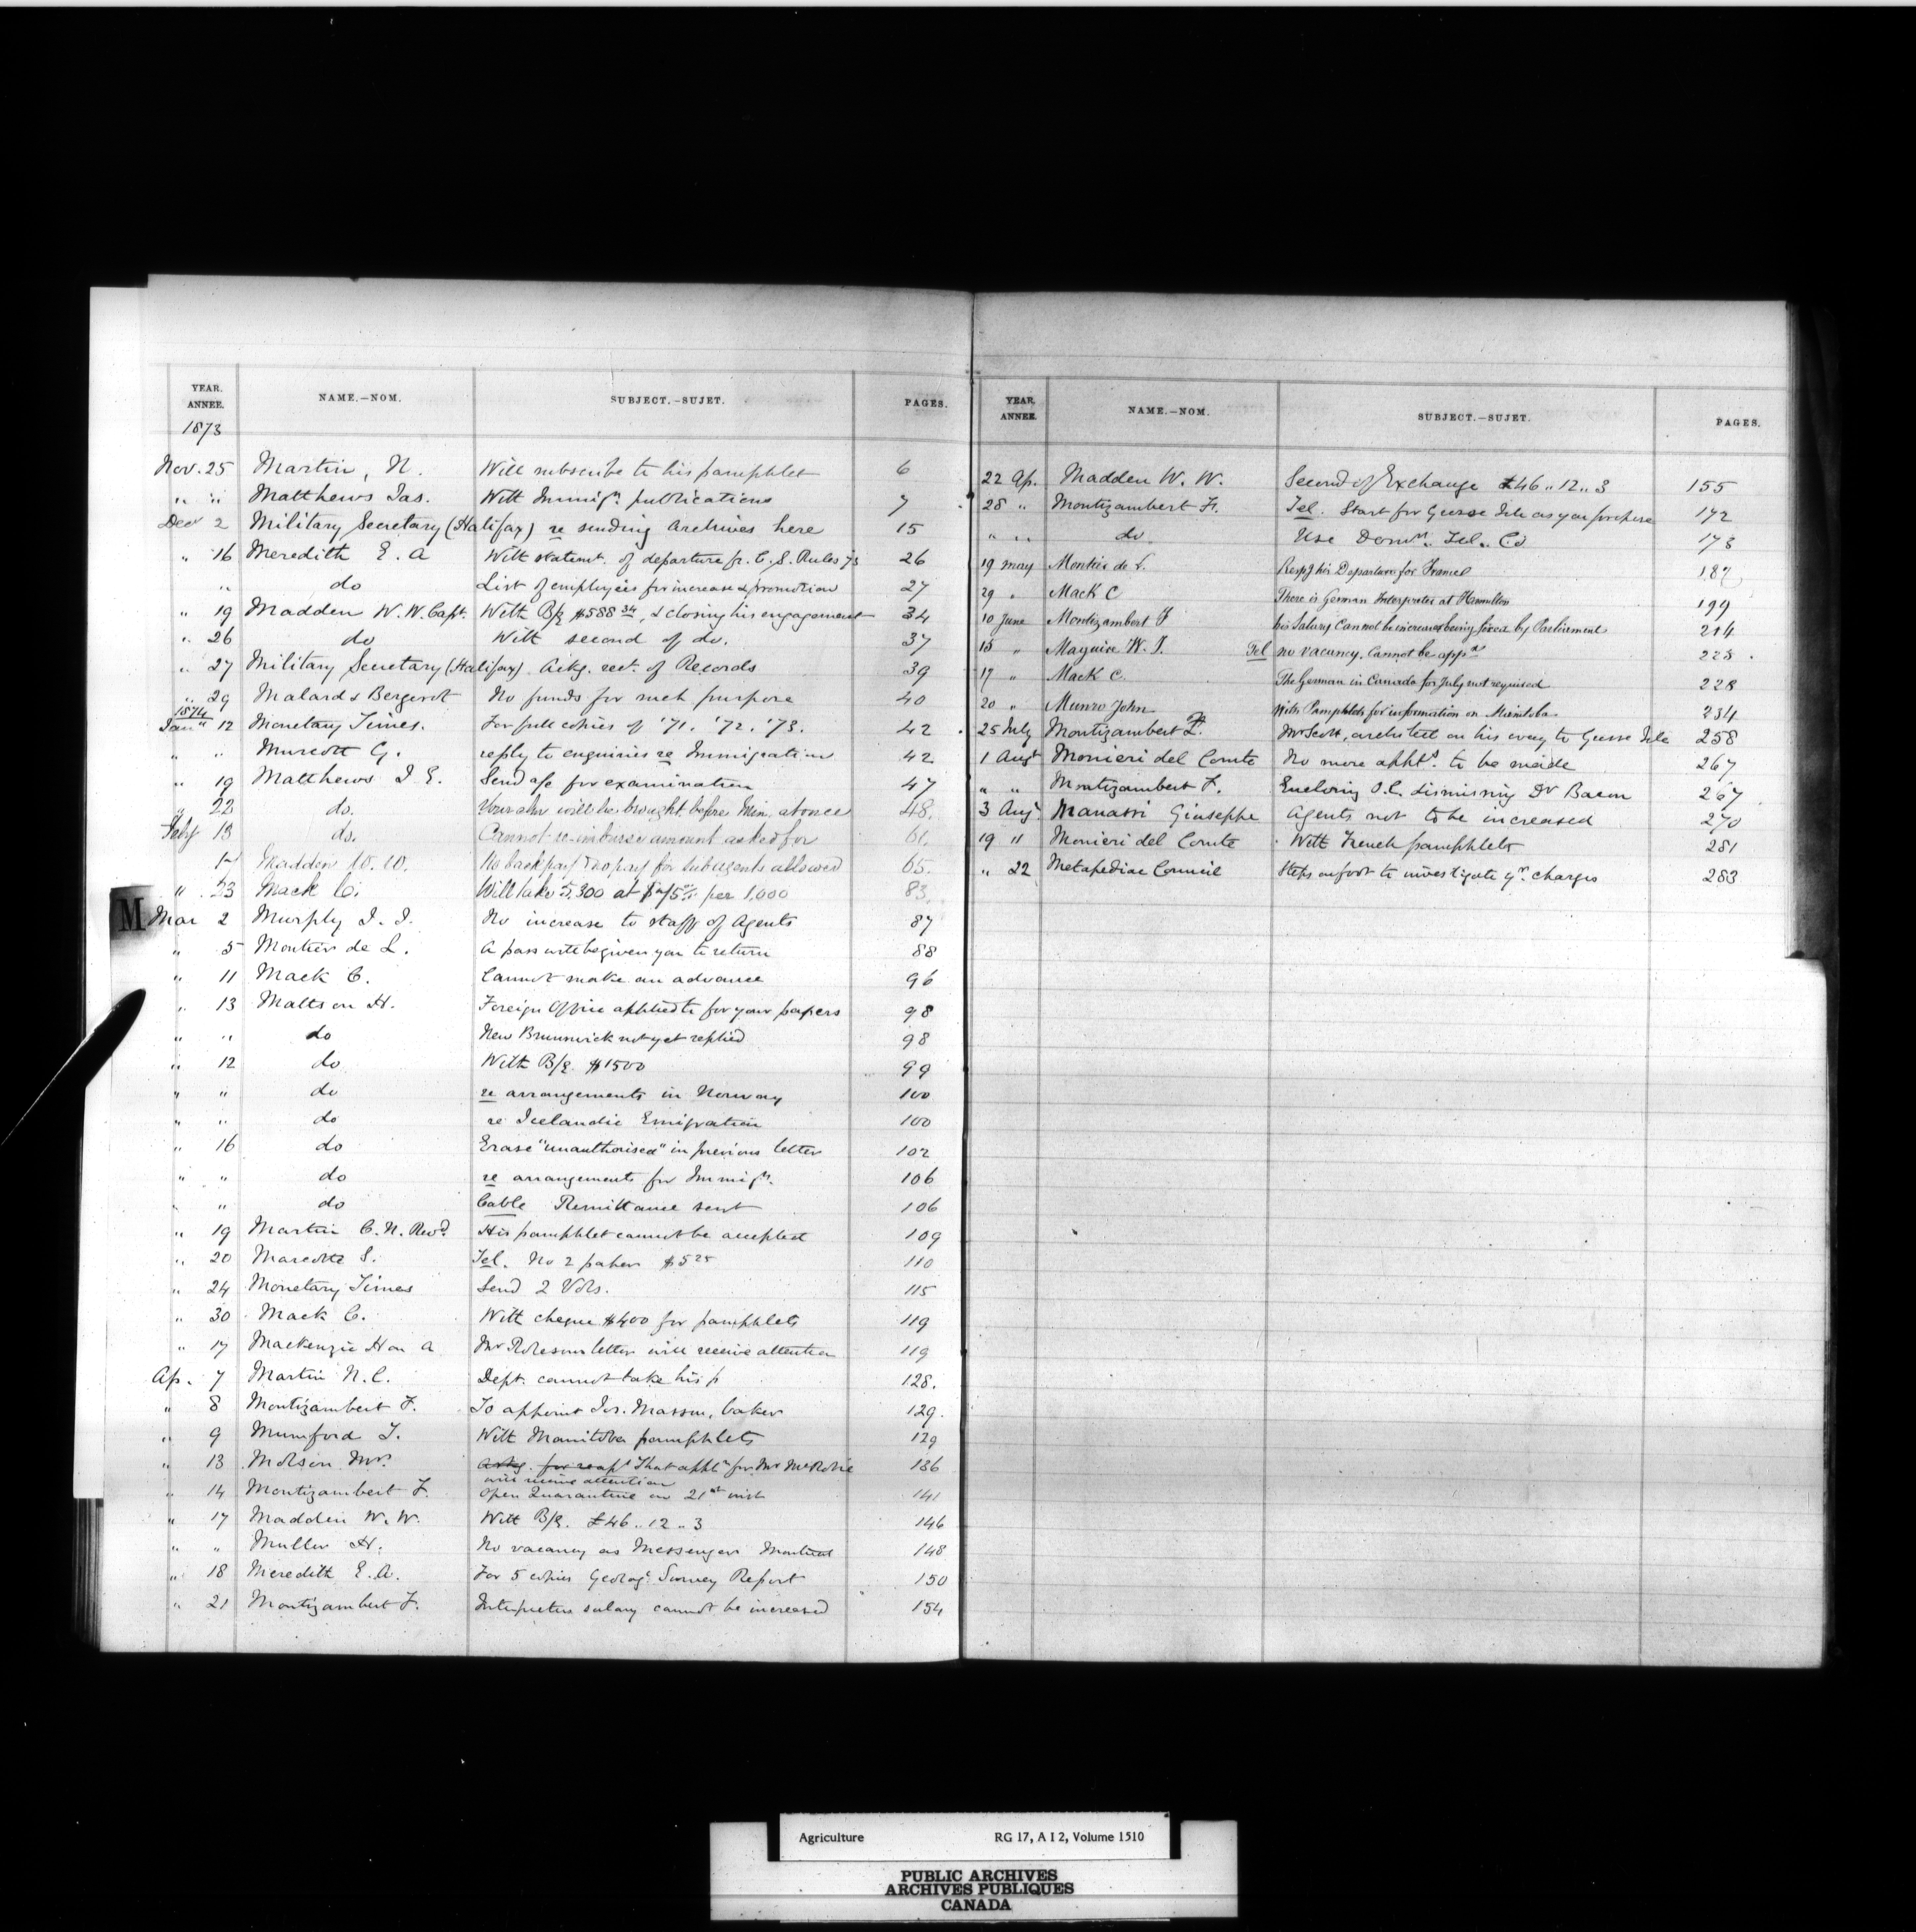 YEAR. ANNEE. NAME.—NOM. SUBJECT.—SUJET. PAGES.
1873
Nov. 25 Martin, N. Will subscribe to his pamphlet 6
" " Matthews Jas. With Immign. publications 7
Decr 2 Military Secretary (Halifax) re sending Archives here 15
" 16 Meredith E. A With statemt. of departure fr. C. S. Rules 73 26
" do List of employees for increase & promotion 27
" 19 Madden W. W. Capt. With B/E $588 34, & closing his engagement 34
" 26 do With second of do. 37
" 27 Military Secretary (Halifax) Ackg. rect. of Records 39
" 29 Malard & Bergerot No funds for such purpose 40
1874
Jany 12 Monetary Times. For full copies of '71. '72. '73. 42
" " Murcott G. reply to enquiries re Immigration 42
" 19 Matthews J. E. Send a/c for examination 47
" 22 do. Your will be brought before Min. at once 48.
Feby 13 do. Cannot re-imburse amount asked for 61.
Madden W. W. No back pay & no pay for sub agents allowed 65.
" 23 Mack C. Will take 5,300 at per 1,000 83.
M
Mar 2 Murphy J. J. No increase to staff of Agents 87
" 5 Montier de L. A pass will be given you to return 88
" 11 Mack C. Cannot make an advance 96
" 13 Mattson H. Foreign Office applied to for your papers 98
" " do New Brunswick not yet replied 98
" 12 do With B/E. $1500 99
" " do re arrangements in Norway 100
" " do re Icelandic Emigration 100
" 16 do Erase "unauthorised" in previous letter 102
" " do re arrangements for Immign. 106
" do Cable Remittance sent 106
" 19 Martin C. N. Revd. His pamphlet cannot be accepted 109
" 20 Marcotte S. Tel. No 2 paper $5 25 110
" 24 Monetary Times Send 2 Vols. 115
" 30 Mack C. With cheque $400 for pamphlets 119
" 17 Mackenzie Hon A Mr letter will receive attention 119
Ap. 7 Martin N. C. Dept. cannot take his p 128.
" 8 Montizambert F. To appoint Jos. Masson, baker 129.
" 9 Mumford T. With Manitoba pamphlets 129
" 13 Molson Mr. Ackg. That appln for Mr McRobie 136
will receive attention
" 14 Montizambert F. Open Quarantine on 21st inst 141
" 17 Madden W. W. With B/E. £46 .. 12 .. 3 146
" " Muller H. No vacancy as Messenger Montreal 148
" 18 Meredith E. A. For 5 copies Geolog. Survey Report 150
" 21 Montizambert F. Interpreters salary cannot be increased 154
YEAR. ANNEE. NAME.—NOM. SUBJECT.—SUJET. PAGES.
22 Ap. Madden W. W. Second of Exchange £46 .. 12 .. 3 155
28 " Montizambert Fr. Tel. Start for Grosse Isle as you propose 172
" " do Use Domn. Tel. Co 173
19 May Montier de L. Respg his Departure for France 187
29 " Mack C There is German Interpreter at Hamilton 199
10 June Montizambert F his Salary cannot be increased being fixed by Parliament 214
15 " Maguire W. J. Tel no vacancy. Cannot be appd 223
17 " Mack C. The German in Canada for July not required 228
20 " Munro John With Pamphlets for information on Manitoba 234
25 July Montizambert F. Mr Scott, architect on his way to Grosse Isle 258
1 Augt Monieri del Comte No more appts. to be made 267
" " Montizambert F. Enclosing O.C. dismissing Dr Bacon 267
3 Augt Manassi Giuseppe Agents not to be increased 270
19 " Monieri del Comte With French pamphlets 281
" 22 Metapediac Council Steps on foot to investigate yr. charges 283
Agriculture RG 17, A I 2, Volume 1510
PUBLIC ARCHIVES
ARCHIVES PUBLIQUES
CANADA